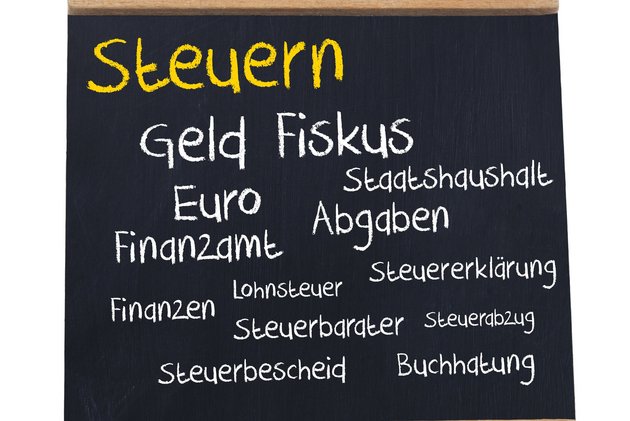 Steuern
Geld Fiskus
Staatshaushalt
Euro Abgaben
Finanzamt
Steuererklärung
Lohnsteuer
Finanzen
Steuerbarater Steuerabzug
Steuerbescheid Buchhatung